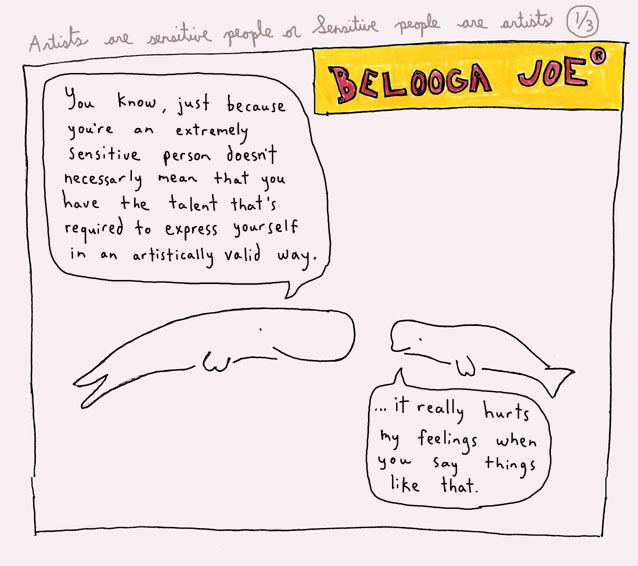 Artists are sensitive people or Sensitive people are artists 1/3
BELOOGA JOE®
You know, just because
you're an extremely
sensitive person doesn't
necessarly mean that you
have the talent that's
required to express yourself
in an artistically valid way.
...it really hurts
my feelings when
you say things
like that.